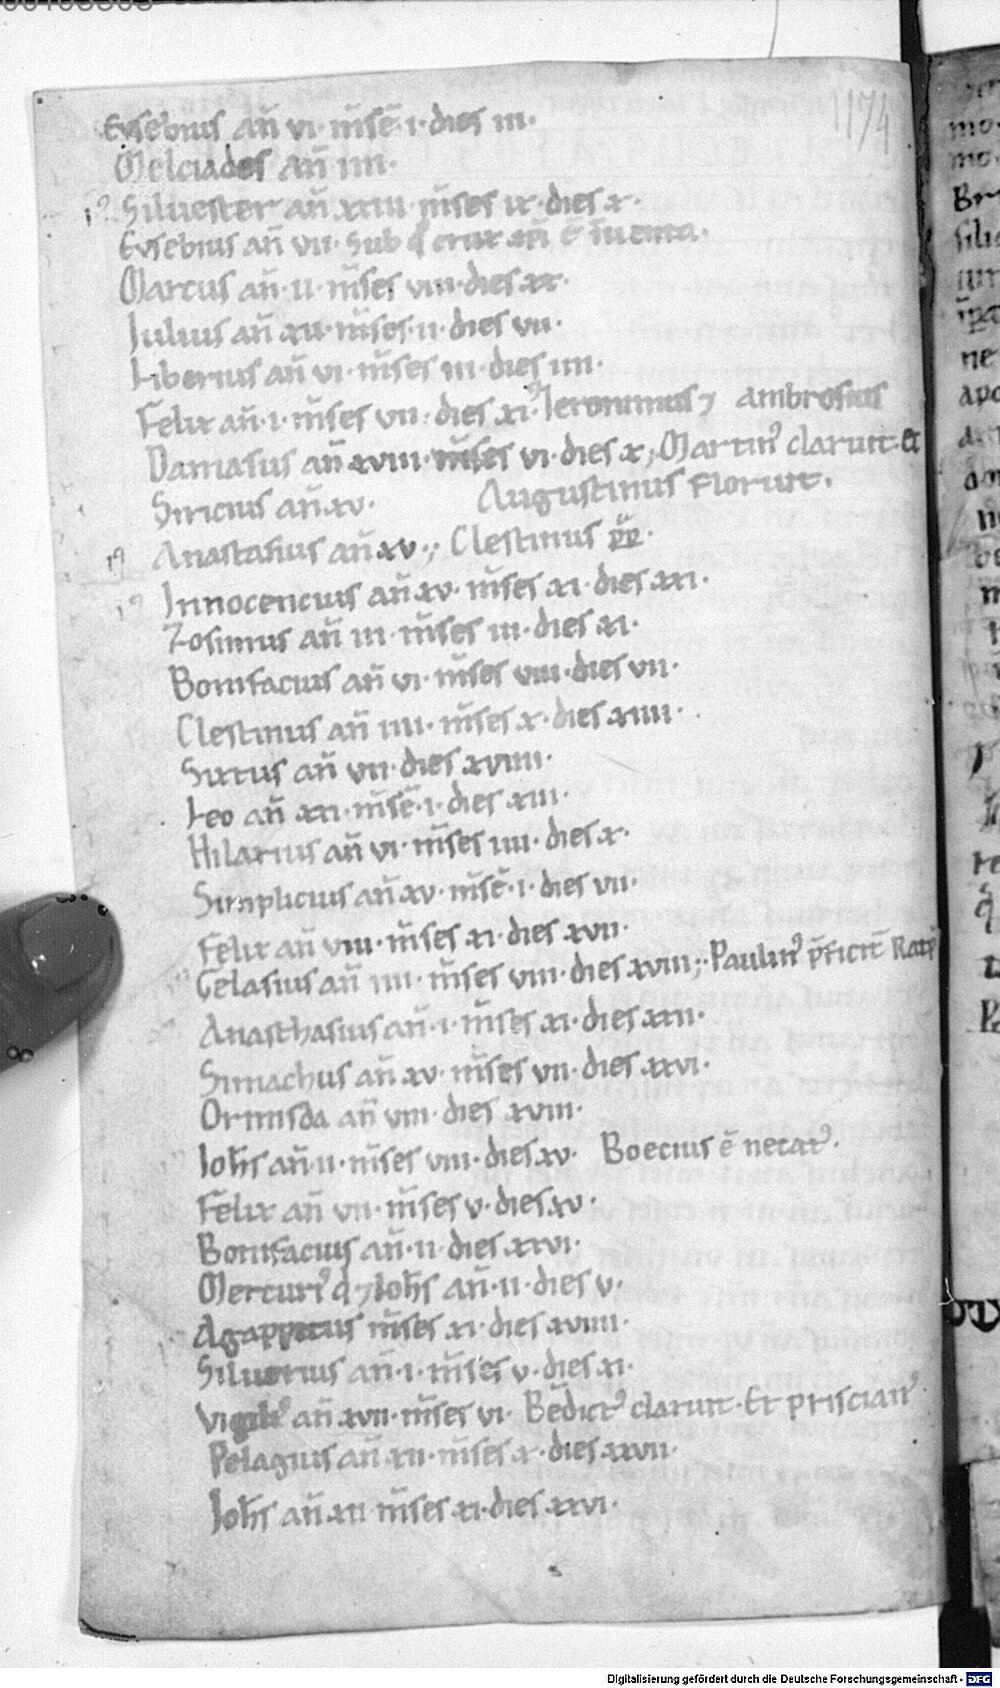 1174
Eusebius añ vi· m̃se̅·i·dies iii·
Melciades añ iiii·
Siluester añ xxiii· m̃ses ix·dies x·
Eusebius añ vii· sub q̇ crux dñi ē iñuenta·
Marcus añ·ii·m̃ses viii·dies xx·
Iulius añ xii·m̃ses·ii·dies vii·
Liberius añ vi·m̃ses iii·dies iiii·
Felix añ·i·m̃ses vii·dies xi·Ieronimus ⁊ ambrosius
Damasus añ xviii·m̃ses vi·dies x; Martin᾽ claruit et
Siricius añ xv· Augustinus Floruit·
Anastasius añ xv·; Clestinus pp̄·
Innocencius añ xv·m̃ses xi·dies xxi·
Zosimus añ iii·m̃ses iii·dies xi·
Bonifacius añ vi·m̃ses viii·dies vii·
Clestinus añ iiii·m̃ses x·dies xiiii·
Sixtus añ vii·dies xviiii·
Leo añ xxi·m̃se̅·i·dies xiii·
Hilarius añ vi·m̃ses iiii·dies x·
Simplicius añ xv·m̃se̅·i·dies vii·
Felix añ viii·m̃ses xi·dies xvii·
Gelasius añ iiii·m̃ses viii·dies xviii;·Paulin᾽ p̄ficit̄ Ratp̄
Anasthasius añ·i·m̃ses xi·dies xxii·
Simachus añ xv·m̃ses vii·dies xxvi·
Ormisda añ viii·dies xviii·
Ioh̄s añ·ii·m̃ses viii·dies xv· Boecius ē necat᾽·
Felix añ vii·m̃ses v·dies xv·
Bonifacius añ·ii·dies xxvi·
Mercuri᾽ q̇ ⁊ Ioh̄s añ·ii·dies v·
Agappitus m̃ses xi·dies xviiii·
Siluerius añ·i·m̃ses v·dies xi·
Vigili᾽ añ xvii·m̃ses vi· Bēdict᾽ claruit·Et priscian᾽
Pelagius añ xii·m̃ses x·dies xxvii·
Ioh̄s añ xii m̃ses xi·dies xxvi·
Digitalisierung gefördert durch die Deutsche Forschungsgemeinschaft - DFG